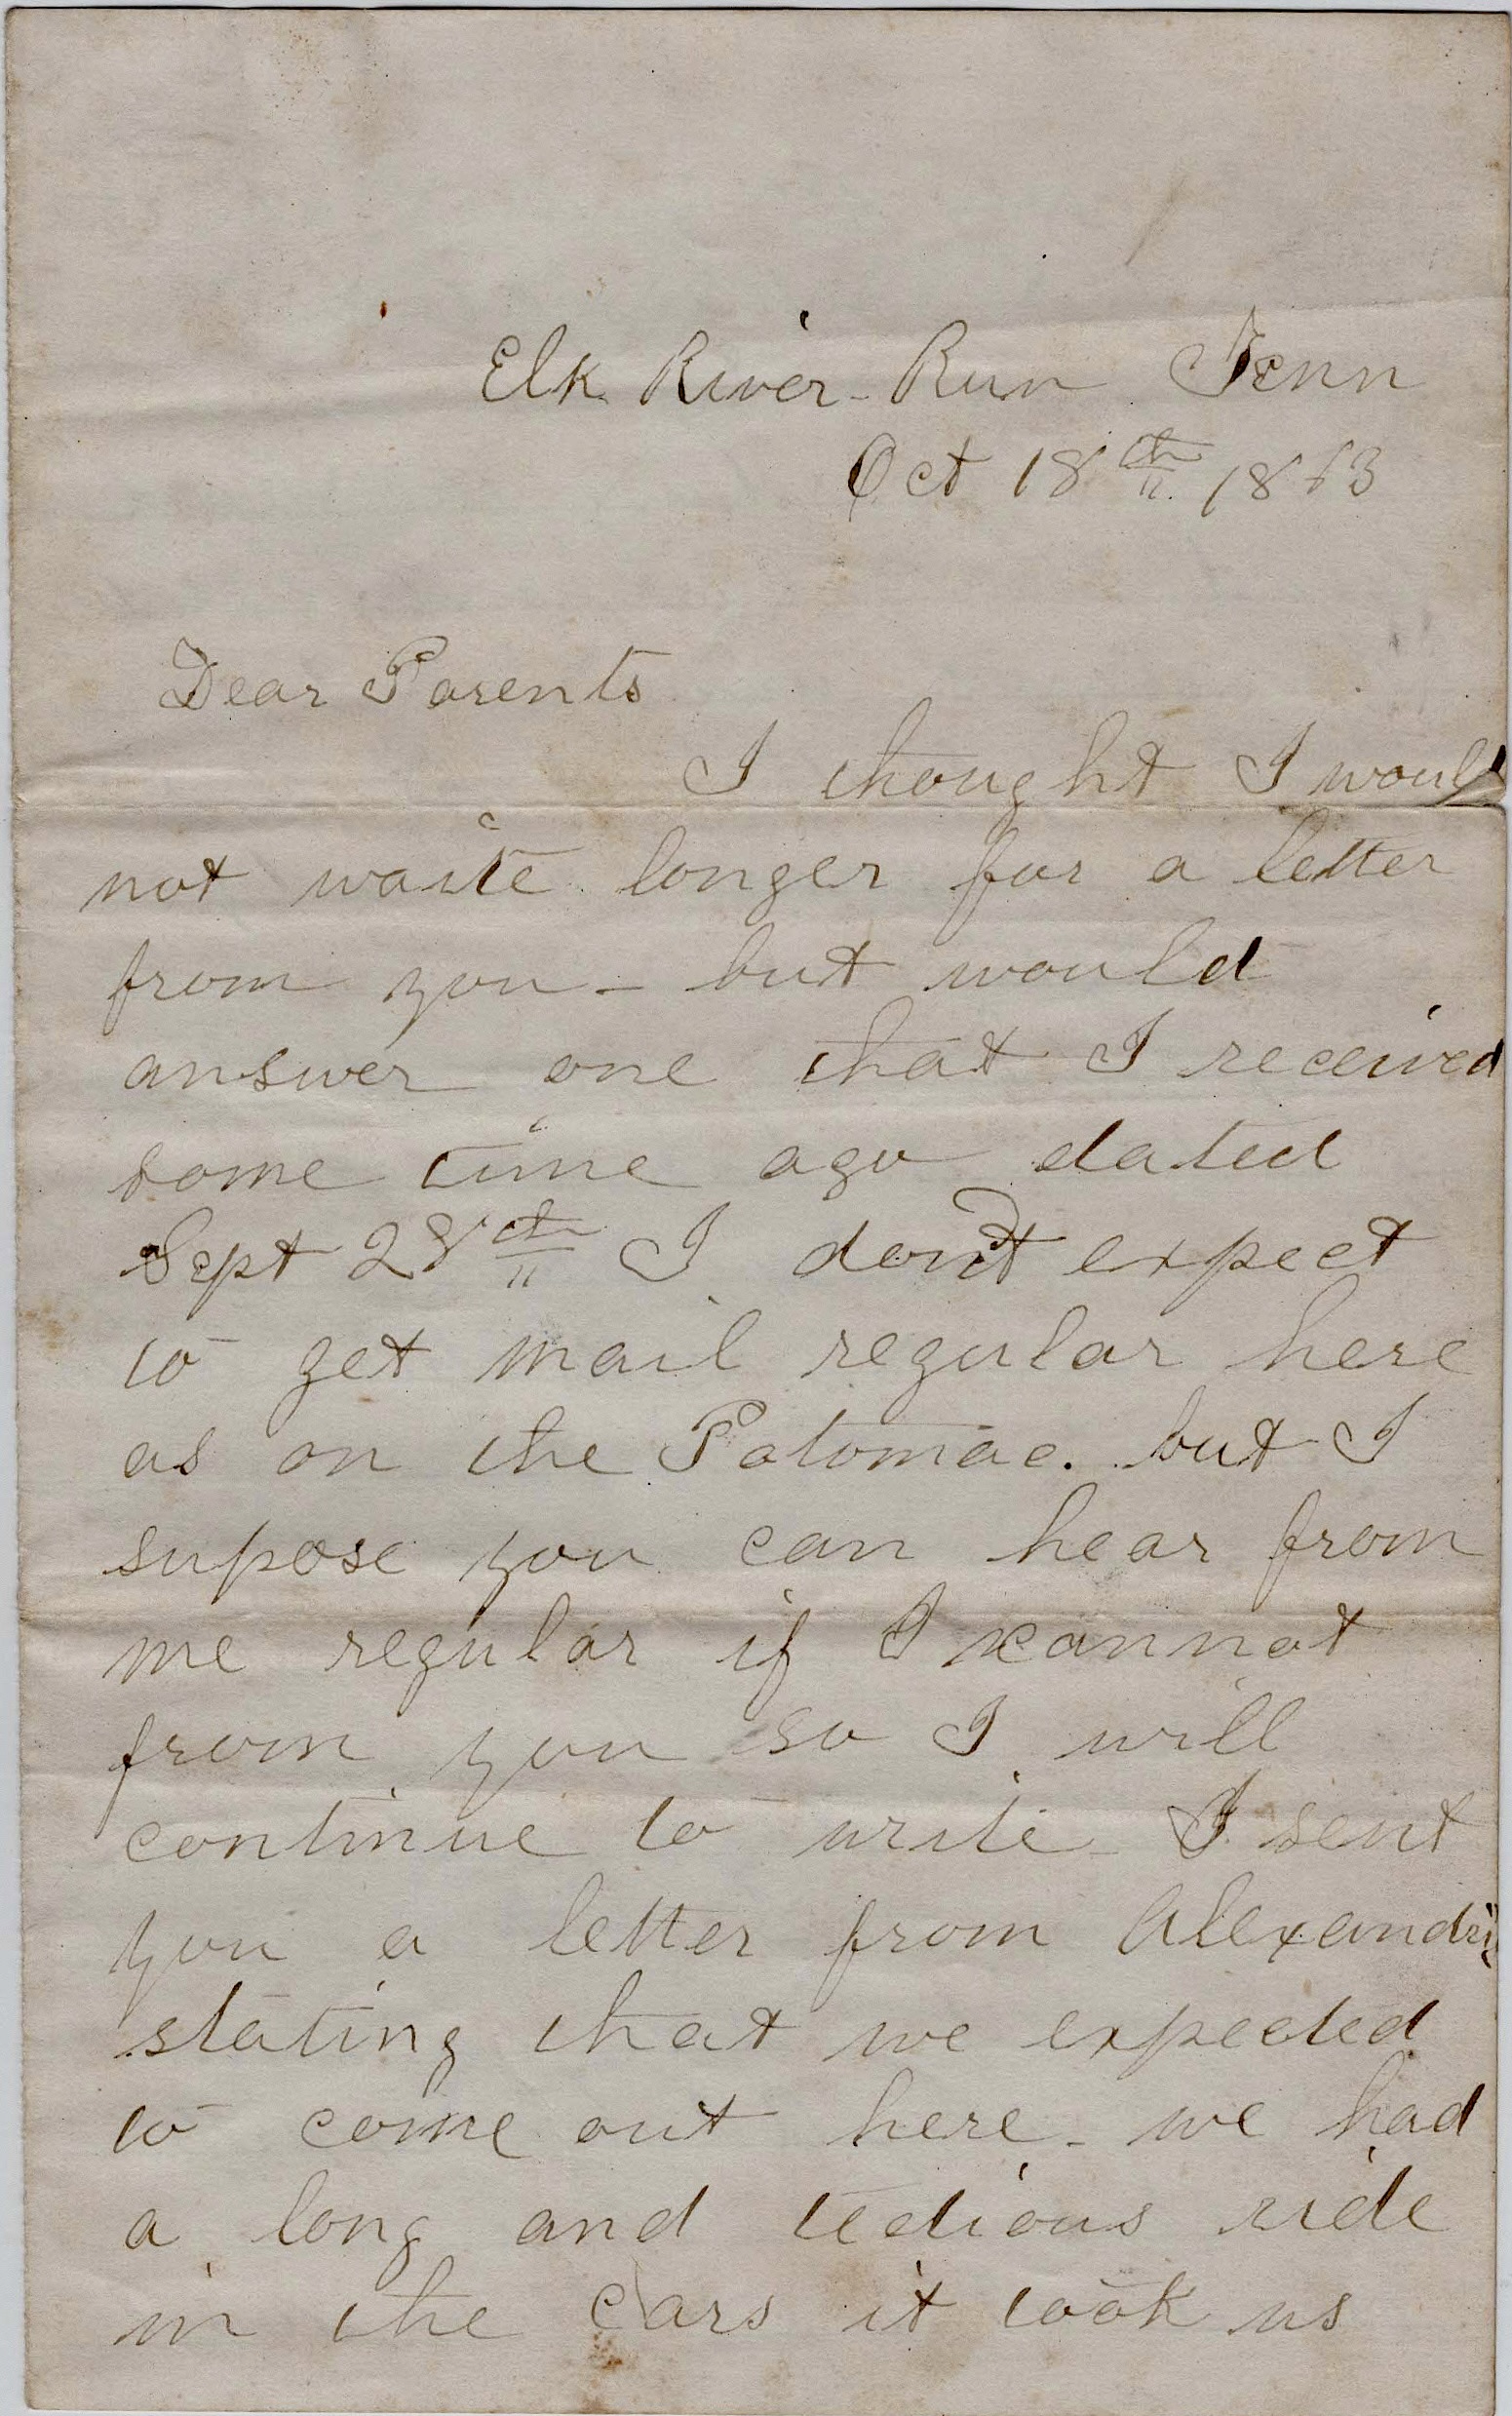 Elk River - Run Tenn
Oct 18th 1863
Dear Parents
I thought I would
not waite longer for a letter
from you - but would
answer one that I received
some time ago dated
Sept 28th I don't expect
to get mail regular here
as on the Potomac. but I
supose you can hear from
me regular if I cannot
from you so I will
continue to write - I sent
you a letter from Alexandri
stating that we expected
to come out here - we had
a long and tedious ride
in the cars it took us